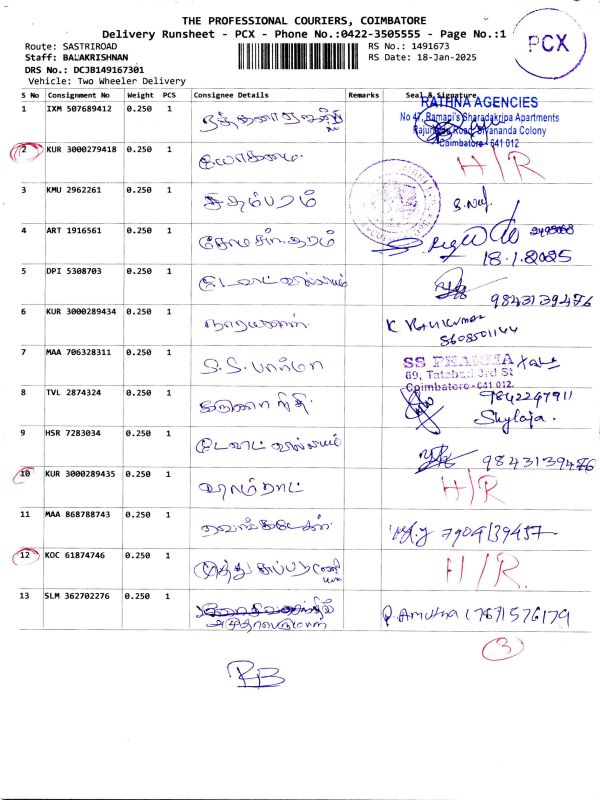 THE PROFESSIONAL COURIERS, COIMBATORE
Delivery Runsheet - PCX - Phone No.:0422-3505555 - Page No.:1
PCX
Route: SASTRIROAD
RS No.: 1491673
Staff: BALAKRISHNAN
RS Date: 18-Jan-2025
DRS No.: DCJB149167301
Vehicle: Two Wheeler Delivery
S No Consignment No Weight PCS Consignee Details Remarks Seal & Signature
1 IXM 507689412 0.250 1
RATHNA AGENCIES
No 47, Ramani's Sharadakripa Apartments
Road, Sivananda Colony
Coimbatore - 641 012
2 KUR 3000279418 0.250 1 H/R
3 KMU 2962261 0.250 1 சிதம்பரம்
4 ART 1916561 0.250 1 சோமசுந்தரம்
18.1.2025
5 DPI 5308703 0.250 1 9843139476
6 KUR 3000289434 0.250 1 நாராயணன் K Ravikumar
8608501144
7 MAA 706328311 0.250 1 S.S. பார்மா SS PHARMA
69, Tatabad 3rd St
Coimbatore - 641 012.
8 TVL 2874324 0.250 1 கருணாநிதி 9842247911
Skylaja.
9 HSR 7283034 0.250 1 9843139476
10 KUR 3000289435 0.250 1 H/R
11 MAA 868788743 0.250 1 7904139457
12 KOC 61874746 0.250 1 H/R.
13 SLM 362702276 0.250 1 P. Amutha (7871576179
3
RB